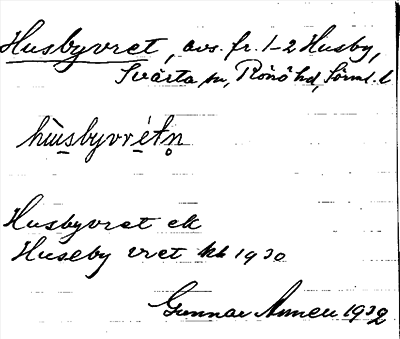 Husbyvret, avs. fr. 1-2 Husby,
Svärta sn, Rönö hd, Sörml. l
hùsbyvrétn̥
Husbyvret ek
Huseby vret kb 1930
Gunnar 1932